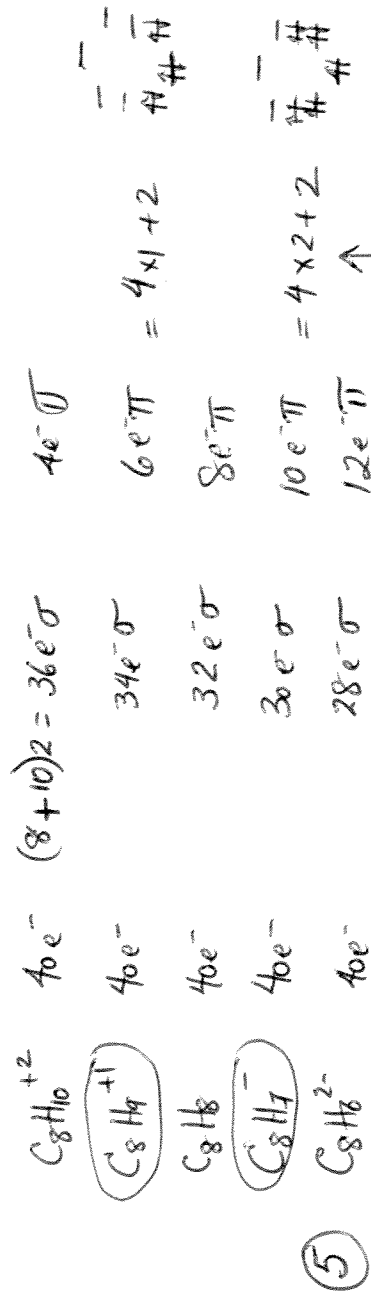 C8H10+2 40e- (8+10)2 = 36e-σ 4e-π
C8H9+1 40e- 34e-σ 6e-π = 4x1+2
C8H8 40e- 32e-σ 8e-π
C8H7- 40e- 30e-σ 10e-π = 4x2+2
5 C8H62- 40e- 28e-σ 12e-π ↑